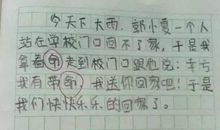 今天下大雨，郭小夏一个人
站在学校门口回不了家，于是我
拿着命走到校门口跟她说：幸亏
我有带命，我送你回家吧！于是
我们快快乐乐的回家了。